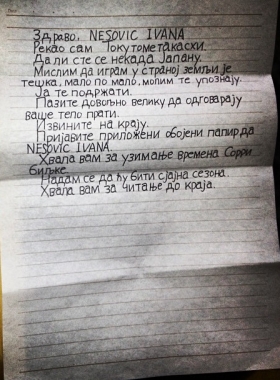 Здраво, NESOVIC IVANA
Рекао сам Токутометакасхи.
Да ли сте се некада Јапану.
Мислим да играм у страној земљи је
тешка, мало по мало, молим те упознају.
Ја те подржати.
Пазите довољно велику да одговарају
ваше тело прати.
Извините на крају.
Пријавите приложени обојени папир да
NESOVIC IVANA.
Хвала вам за узимање времена Сорри
биљке.
Надам се да ћу бити сјајна сезона.
Хвала вам за читање до краја.